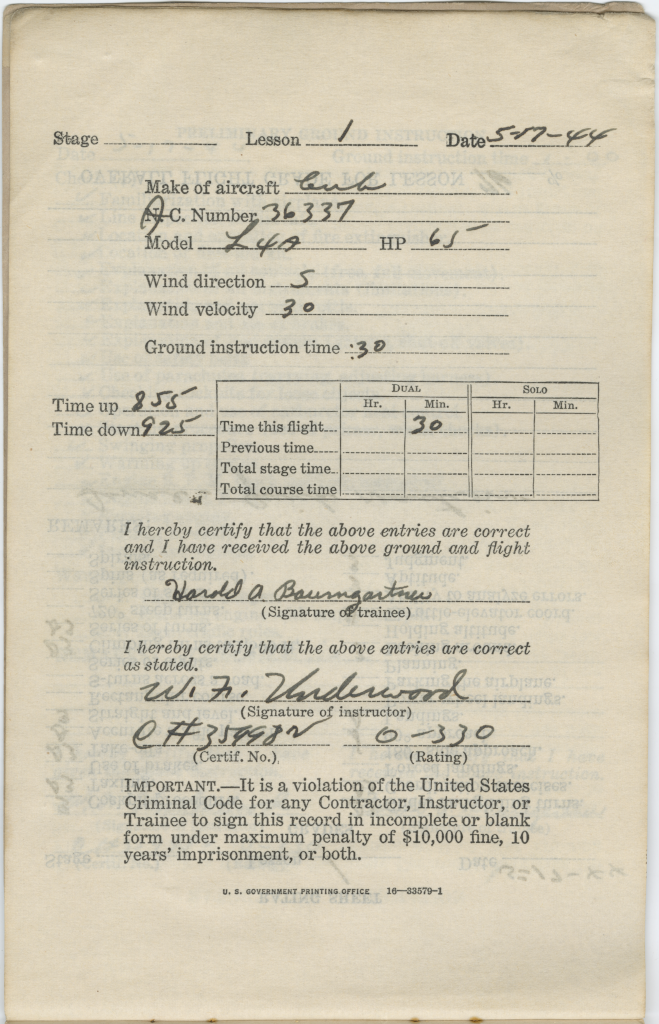 Stage Lesson 1 Date 5-17-44
Make of aircraft Cub
N. C. Number 36337
Model L4A HP 65
Wind direction S
Wind velocity 30
Ground instruction time :30
DUAL SOLO
Time up 855 Hr. Min. Hr. Min.
Time down 925 Time this flight 30
Previous time
Total stage time
Total course time
I hereby certify that the above entries are correct
and I have received the above ground and flight
instruction.
Harold A Baumgartner
(Signature of trainee)
I hereby certify that the above entries are correct
as stated.
W. F. Underwood
(Signature of instructor)
C # O-330
(Certif. No.) (Rating)
IMPORTANT.—It is a violation of the United States
Criminal Code for any Contractor, Instructor, or
Trainee to sign this record in incomplete or blank
form under maximum penalty of $10,000 fine, 10
years' imprisonment, or both.
U. S. GOVERNMENT PRINTING OFFICE 16—33579-1